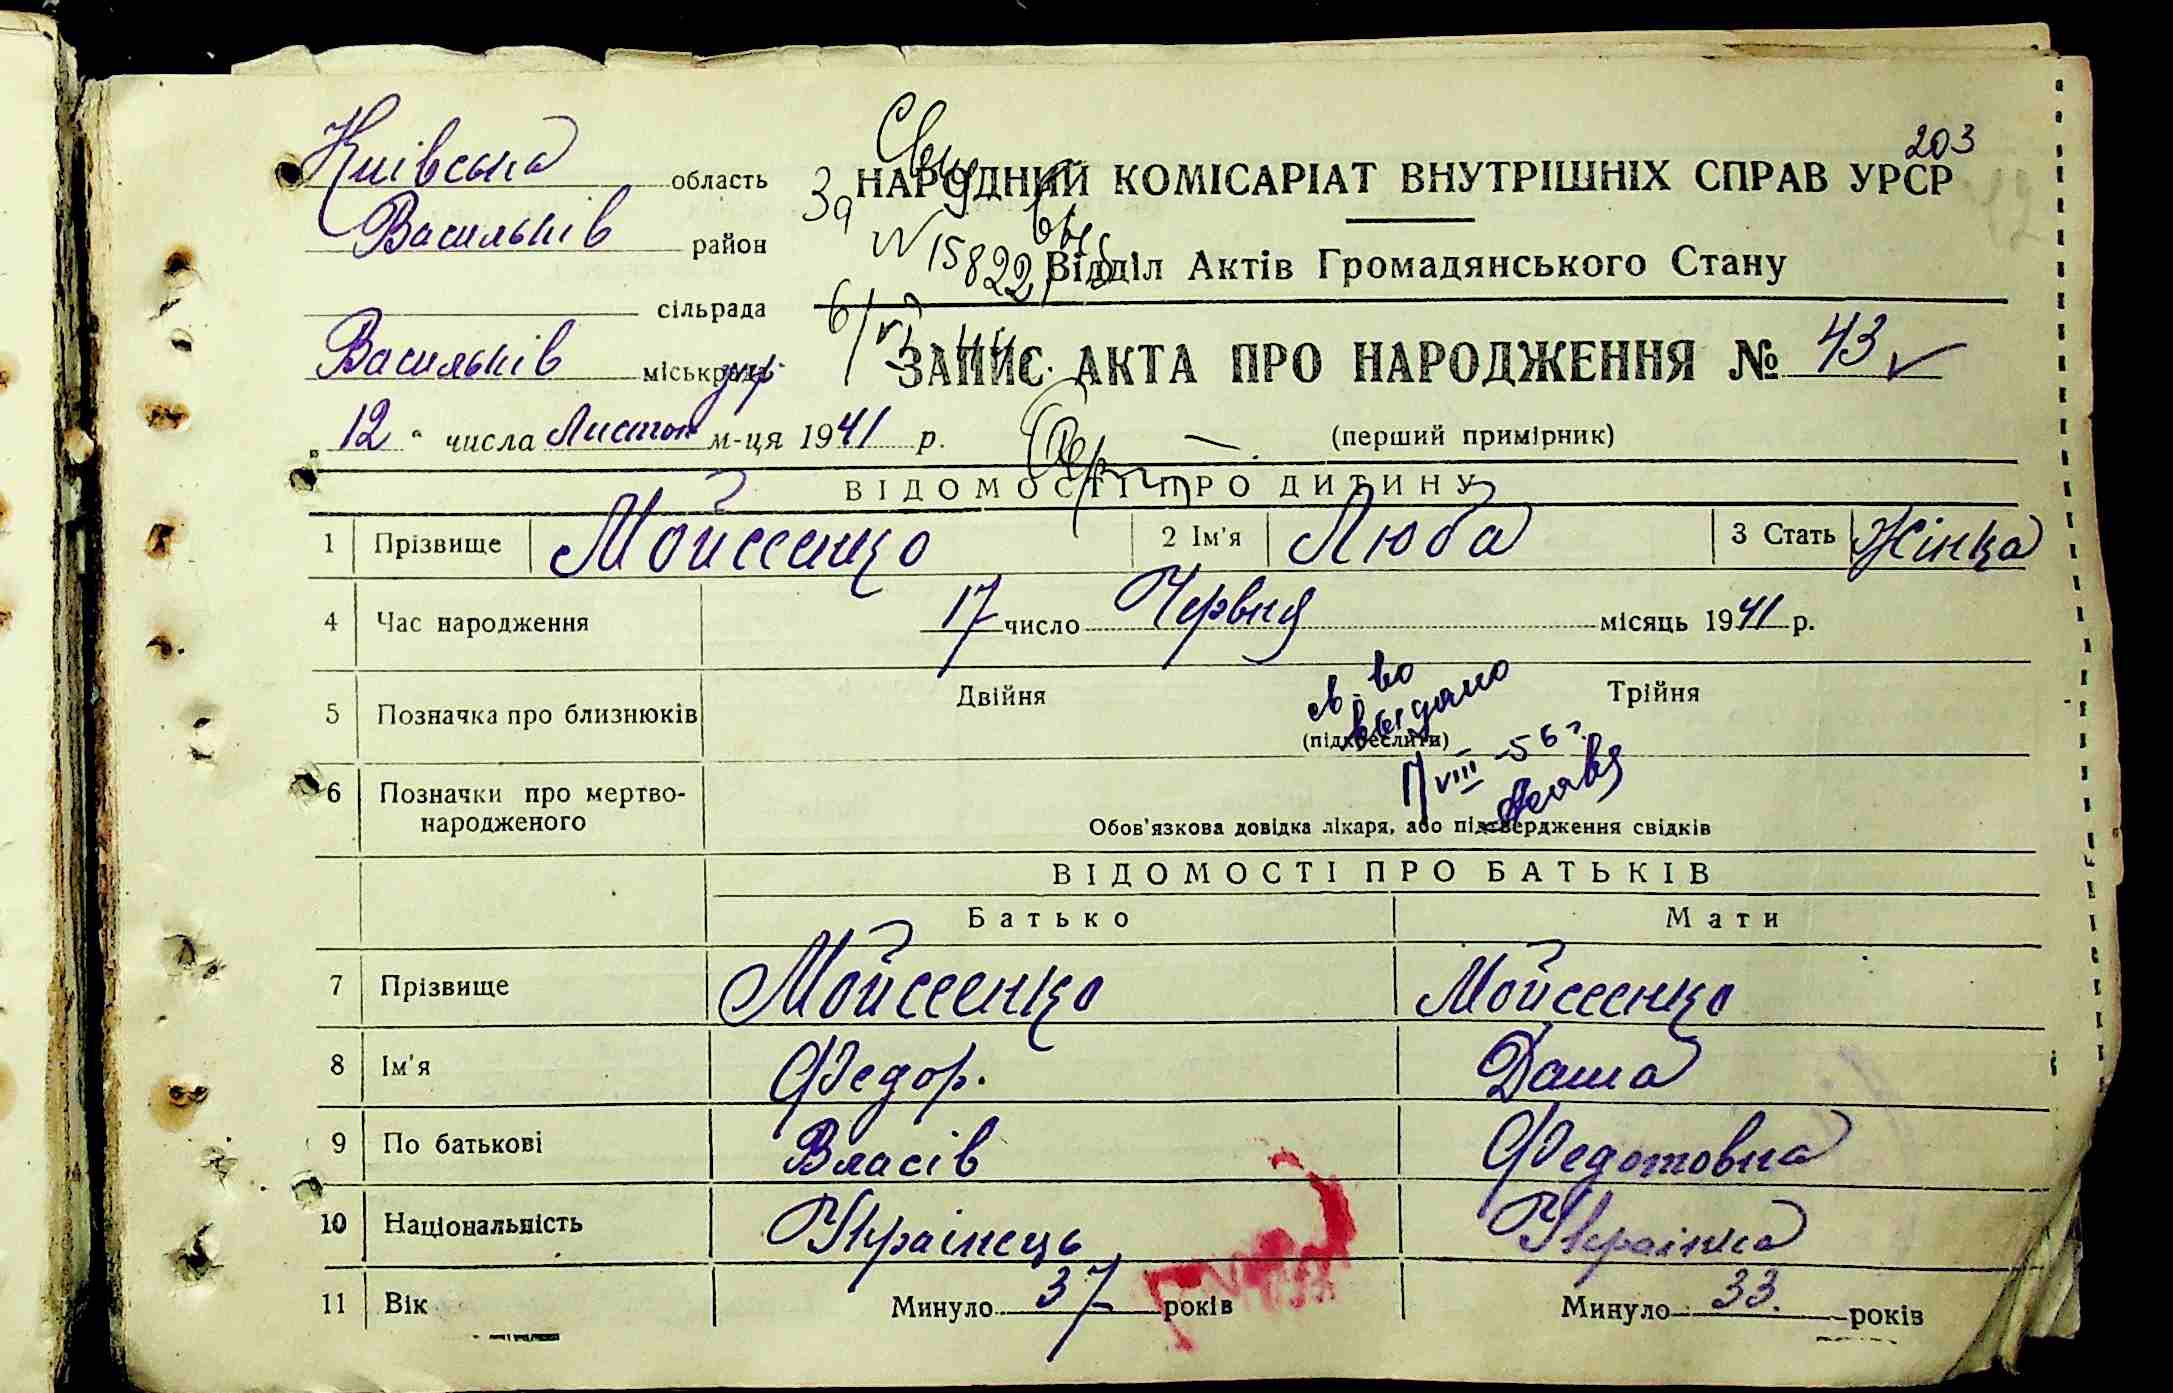 203
Київська область
Васильків район
сільрада
Васильків міськрада упр
„12" числа Листоп м-ця 1941 р.
НАРОДНИЙ КОМІСАРІАТ ВНУТРІШНІХ СПРАВ УРСР
Відділ Актів Громадянського Стану
№ 15822
ЗАПИС АКТА ПРО НАРОДЖЕННЯ № 43
(перший примірник)
ВІДОМОСТІ ПРО ДИТИНУ
1 Прізвище Мойсеенко 2 Ім'я Люба 3 Стать Жінка
4 Час народження 17 число Червня місяць 1941 р.
5 Позначка про близнюків Двійня Трійня
(підкреслити)
св-во
выдано
17 VIII-56 г.
6 Позначки про мертво-
народженого
Обов'язкова довідка лікаря, або підтвердження свідків
ВІДОМОСТІ ПРО БАТЬКІВ
Батько Мати
7 Прізвище Мойсеенко Мойсеенко
8 Ім'я Федор. Даша
9 По батькові Власів Федотовна
10 Національність Українець Українка
11 Вік Минуло 37 років Минуло 33. років